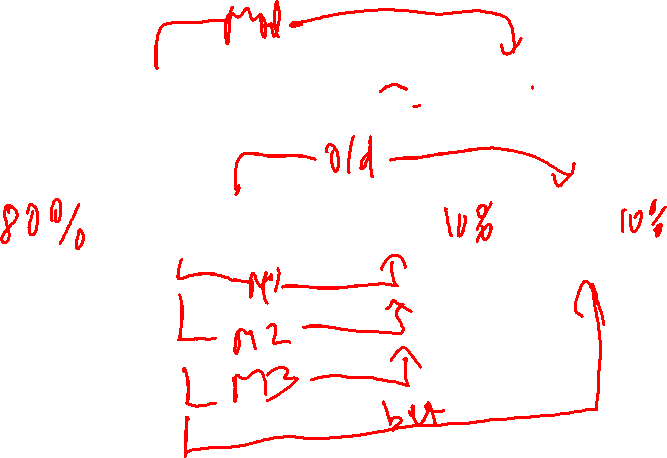 Mod
old
80% 10% 10%
M1
M2
M3
but